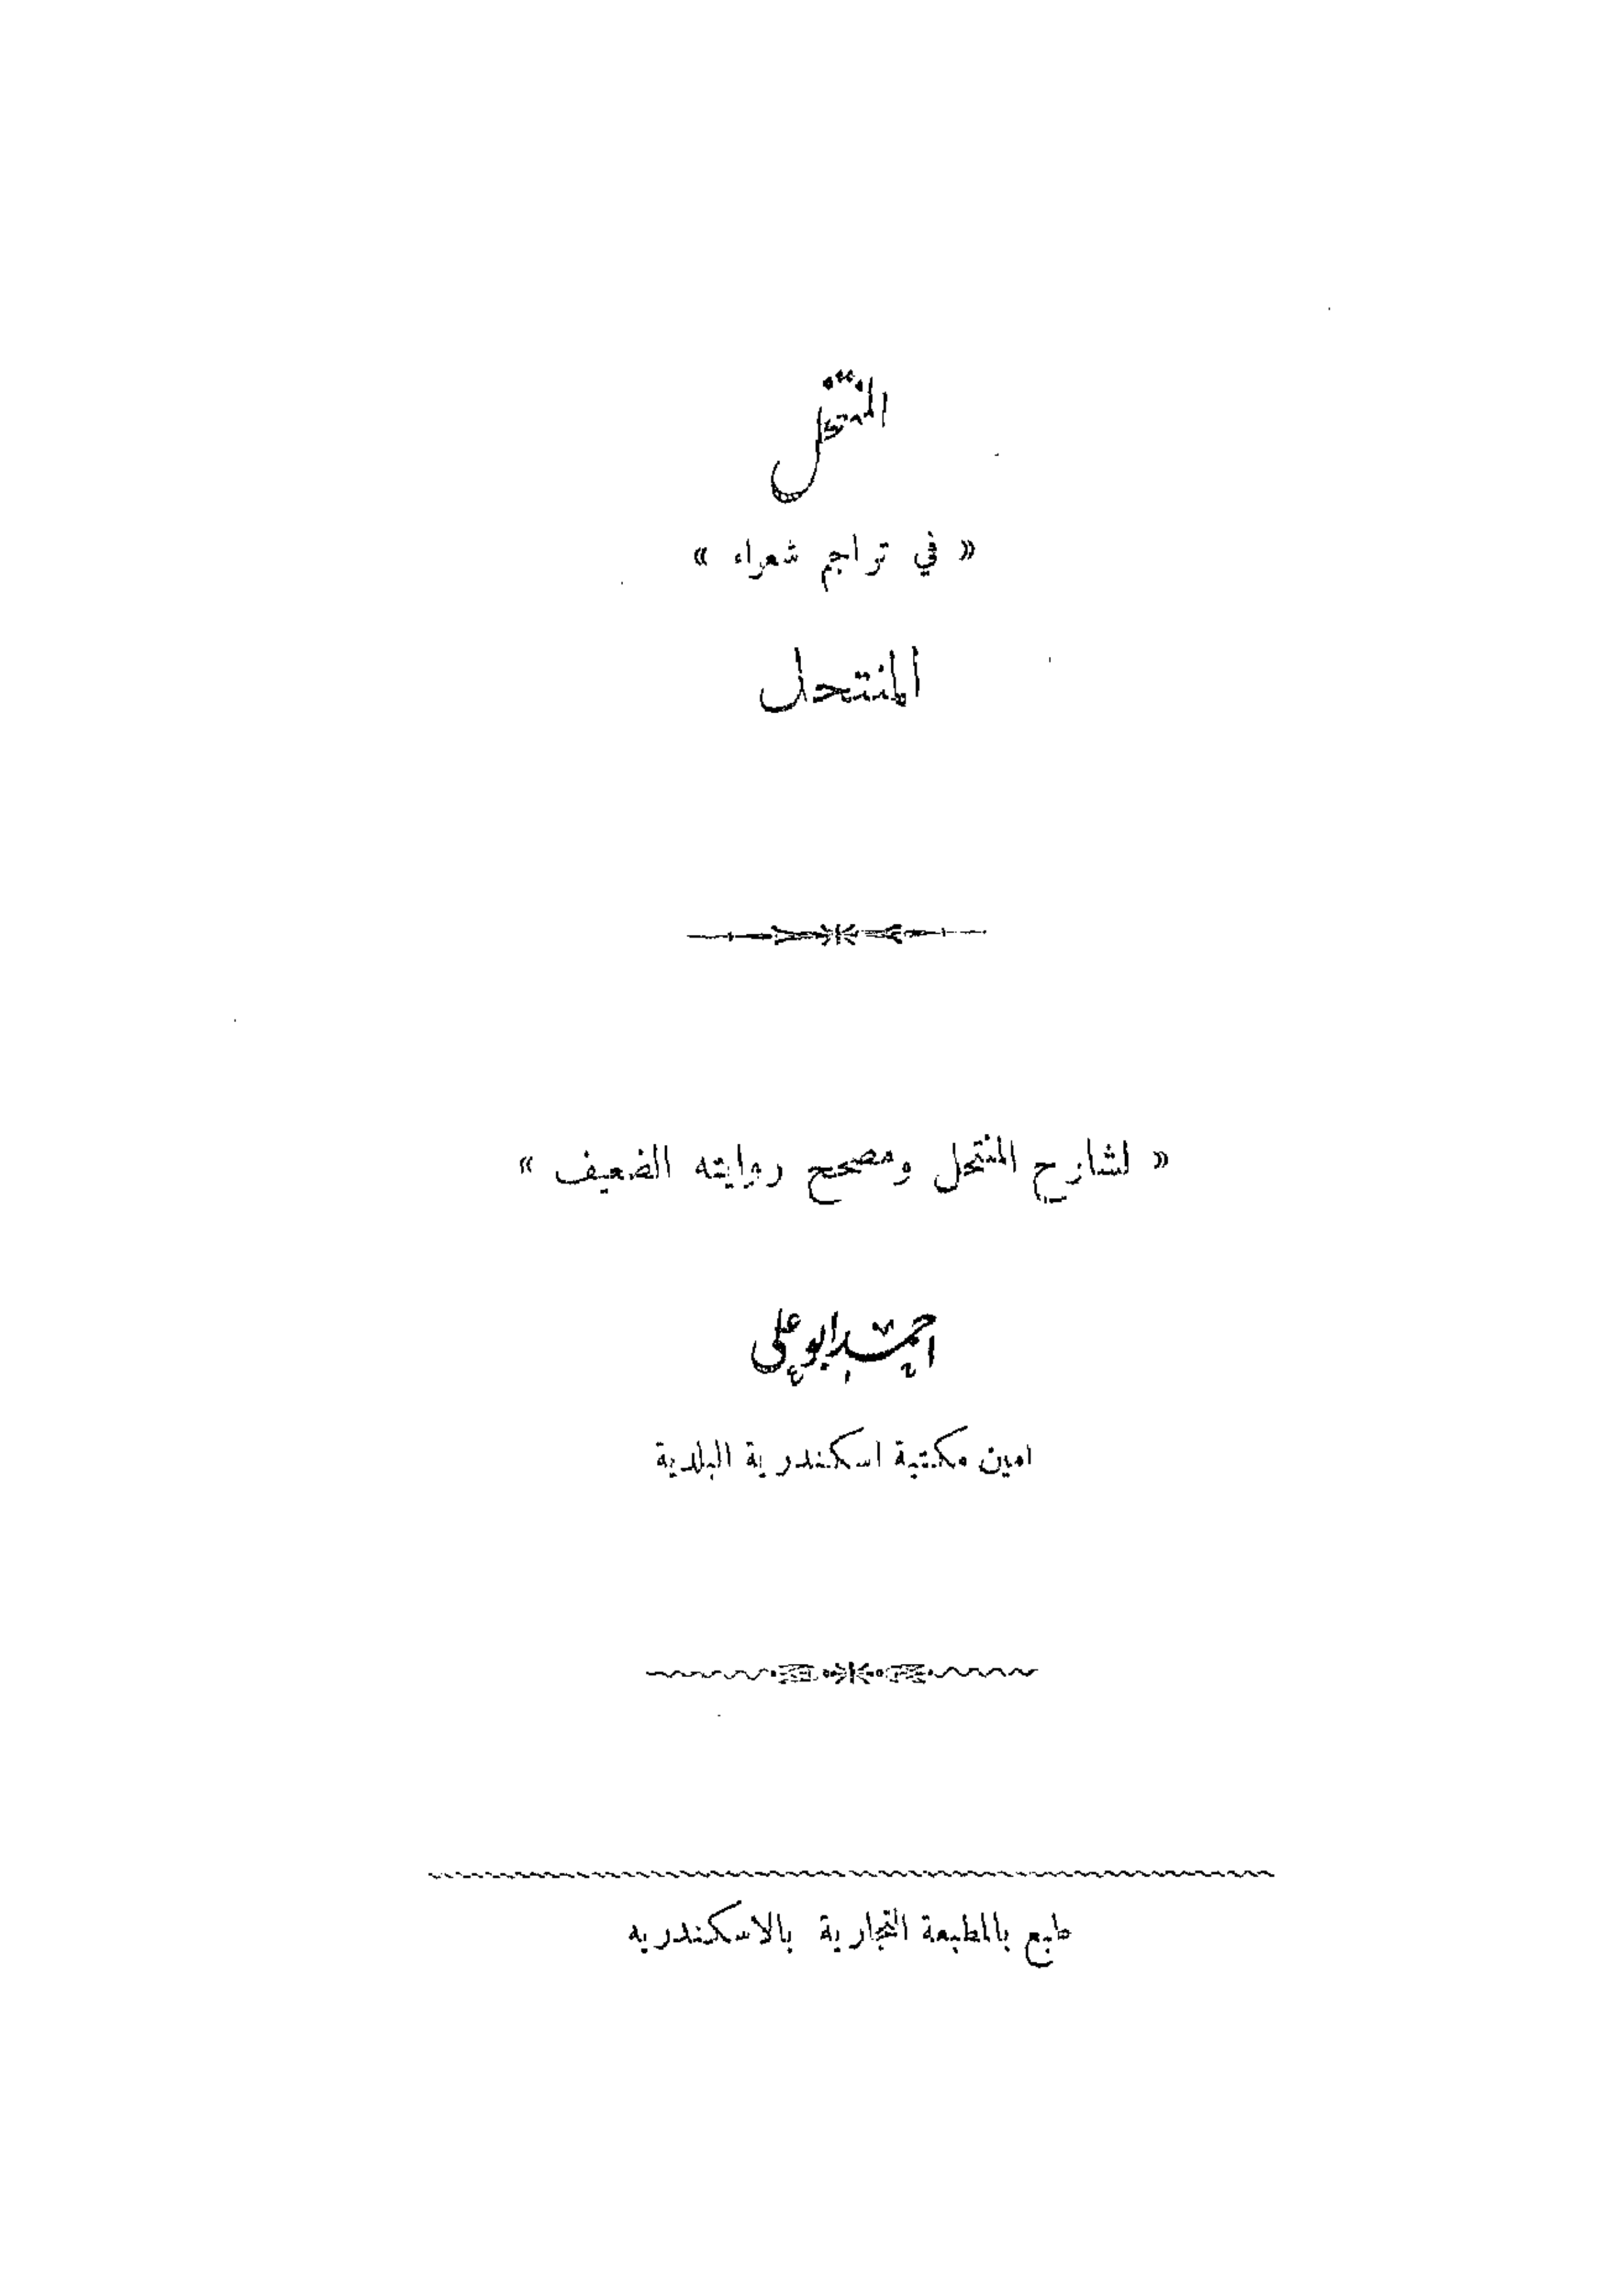 المنتخل
« في تراجم شعراء »
المنتحل
« لشارح المنتحل ومصحح روايته الضعيف »
احمد ابو علي
امين مكتبة اسكندرية البلدية
طبع بالمطبعة التجارية بالاسكندريه